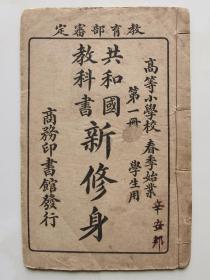 教育部審定
高等小學校 春季始業
第一冊 學生用
共和國
教科書
新修身
商務印書館發行
辛安邦